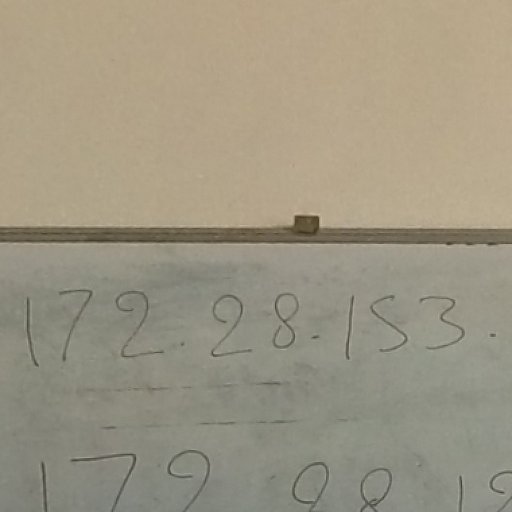 172.28.153.
172.28.12